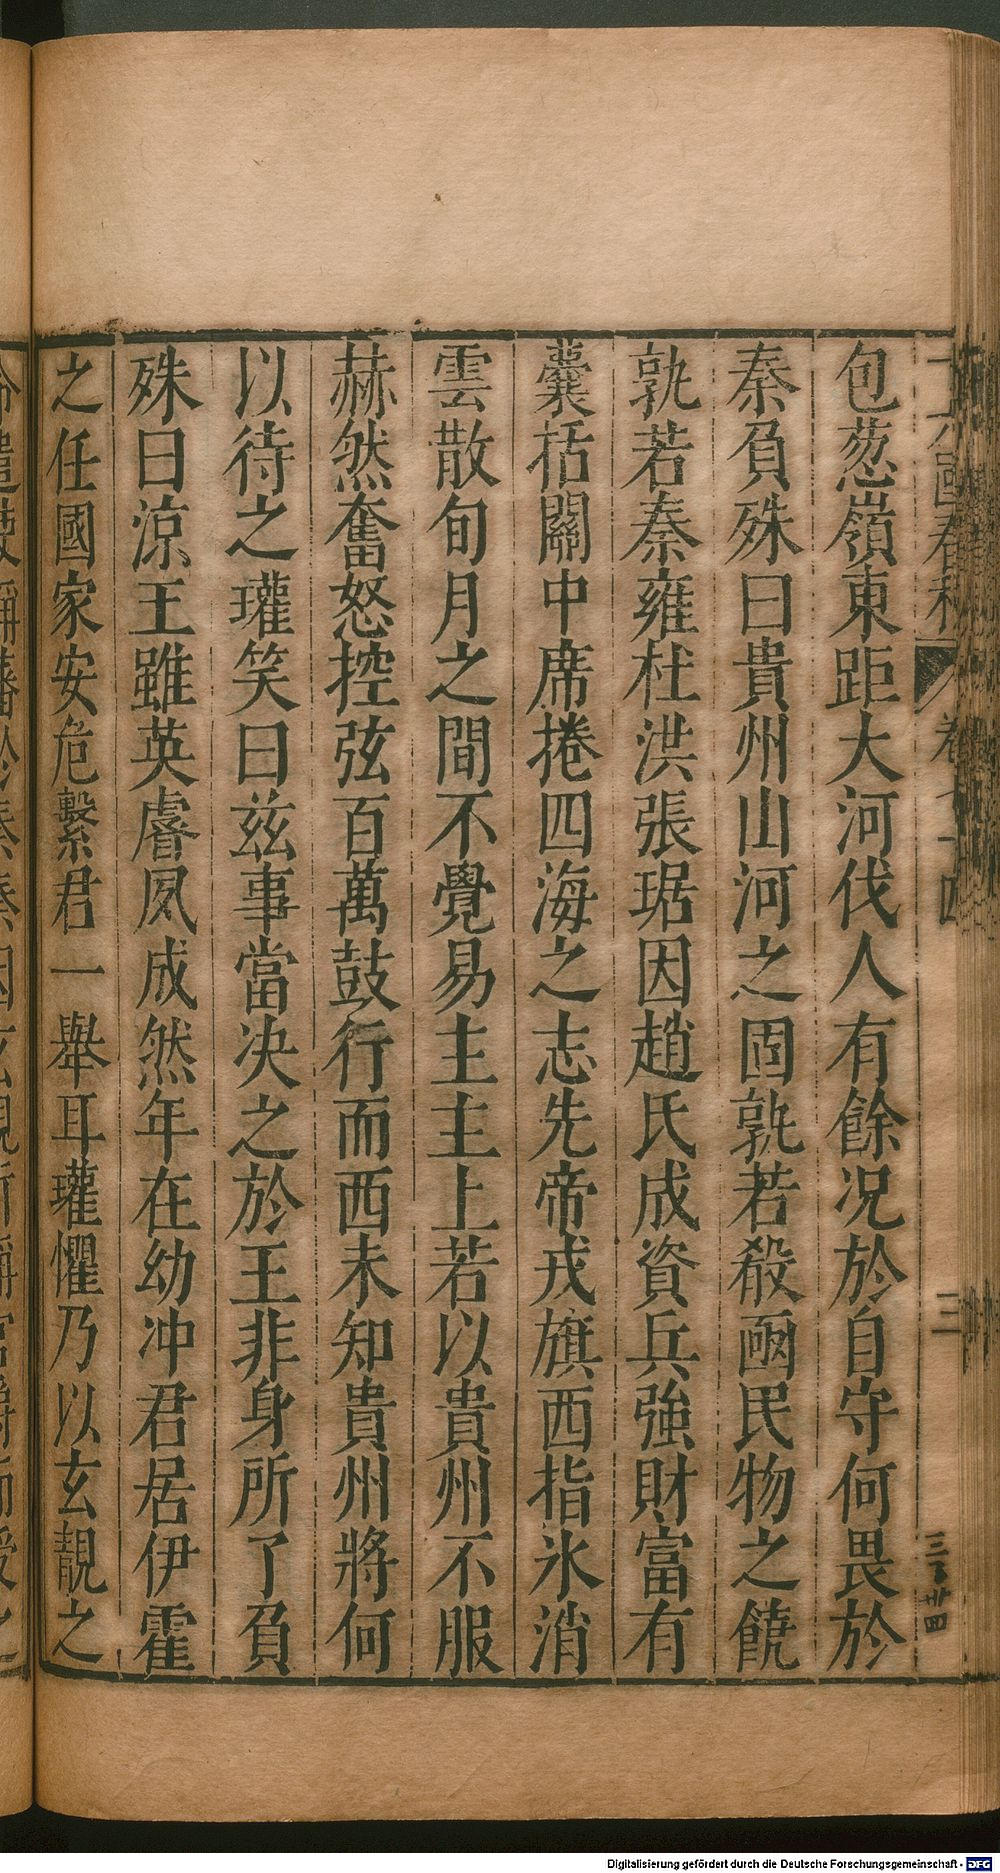 包葱嶺東距大河伐人有餘况於自守何畏於
秦負殊曰貴州山河之固孰若殽凾民物之饒
孰若秦雍杜洪張琚因趙氏成資兵強財富有
囊括關中席捲四海之志先帝戎旗西指氷消
雲散旬月之間不覺易主主上若以貴州不服
赫然奮怒控弦百萬鼓行而西未知貴州將何
以待之瓘笑曰兹事當决之於王非身所了負
殊曰涼王雖英睿夙成然年在幼冲君居伊霍
之任國家安危繫君一舉耳瓘懼乃以玄靚之
Digitalisierung gefördert durch die Deutsche Forschungsgemeinschaft - DFG